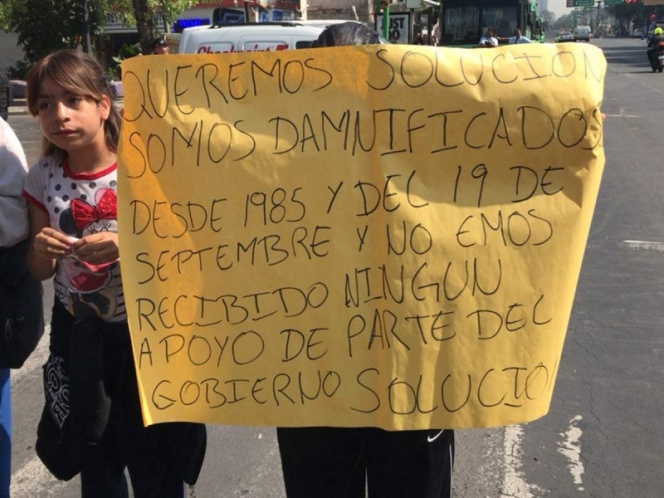 QUEREMOS SOLUCION
SOMOS DAMNIFICADOS
DESDE 1985 Y DEL 19 DE
SEPTEMBRE Y NO EMOS
RECIBIDO NINGUN
APOYO DE PARTE DEL
GOBIERNO SOLUCIO